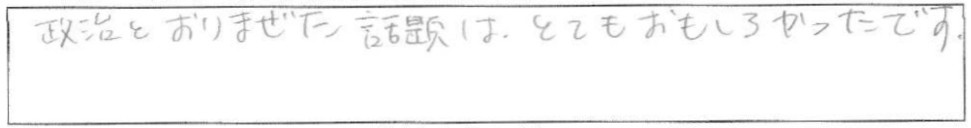 政治とおりまぜた話題は、とてもおもしろかったです。